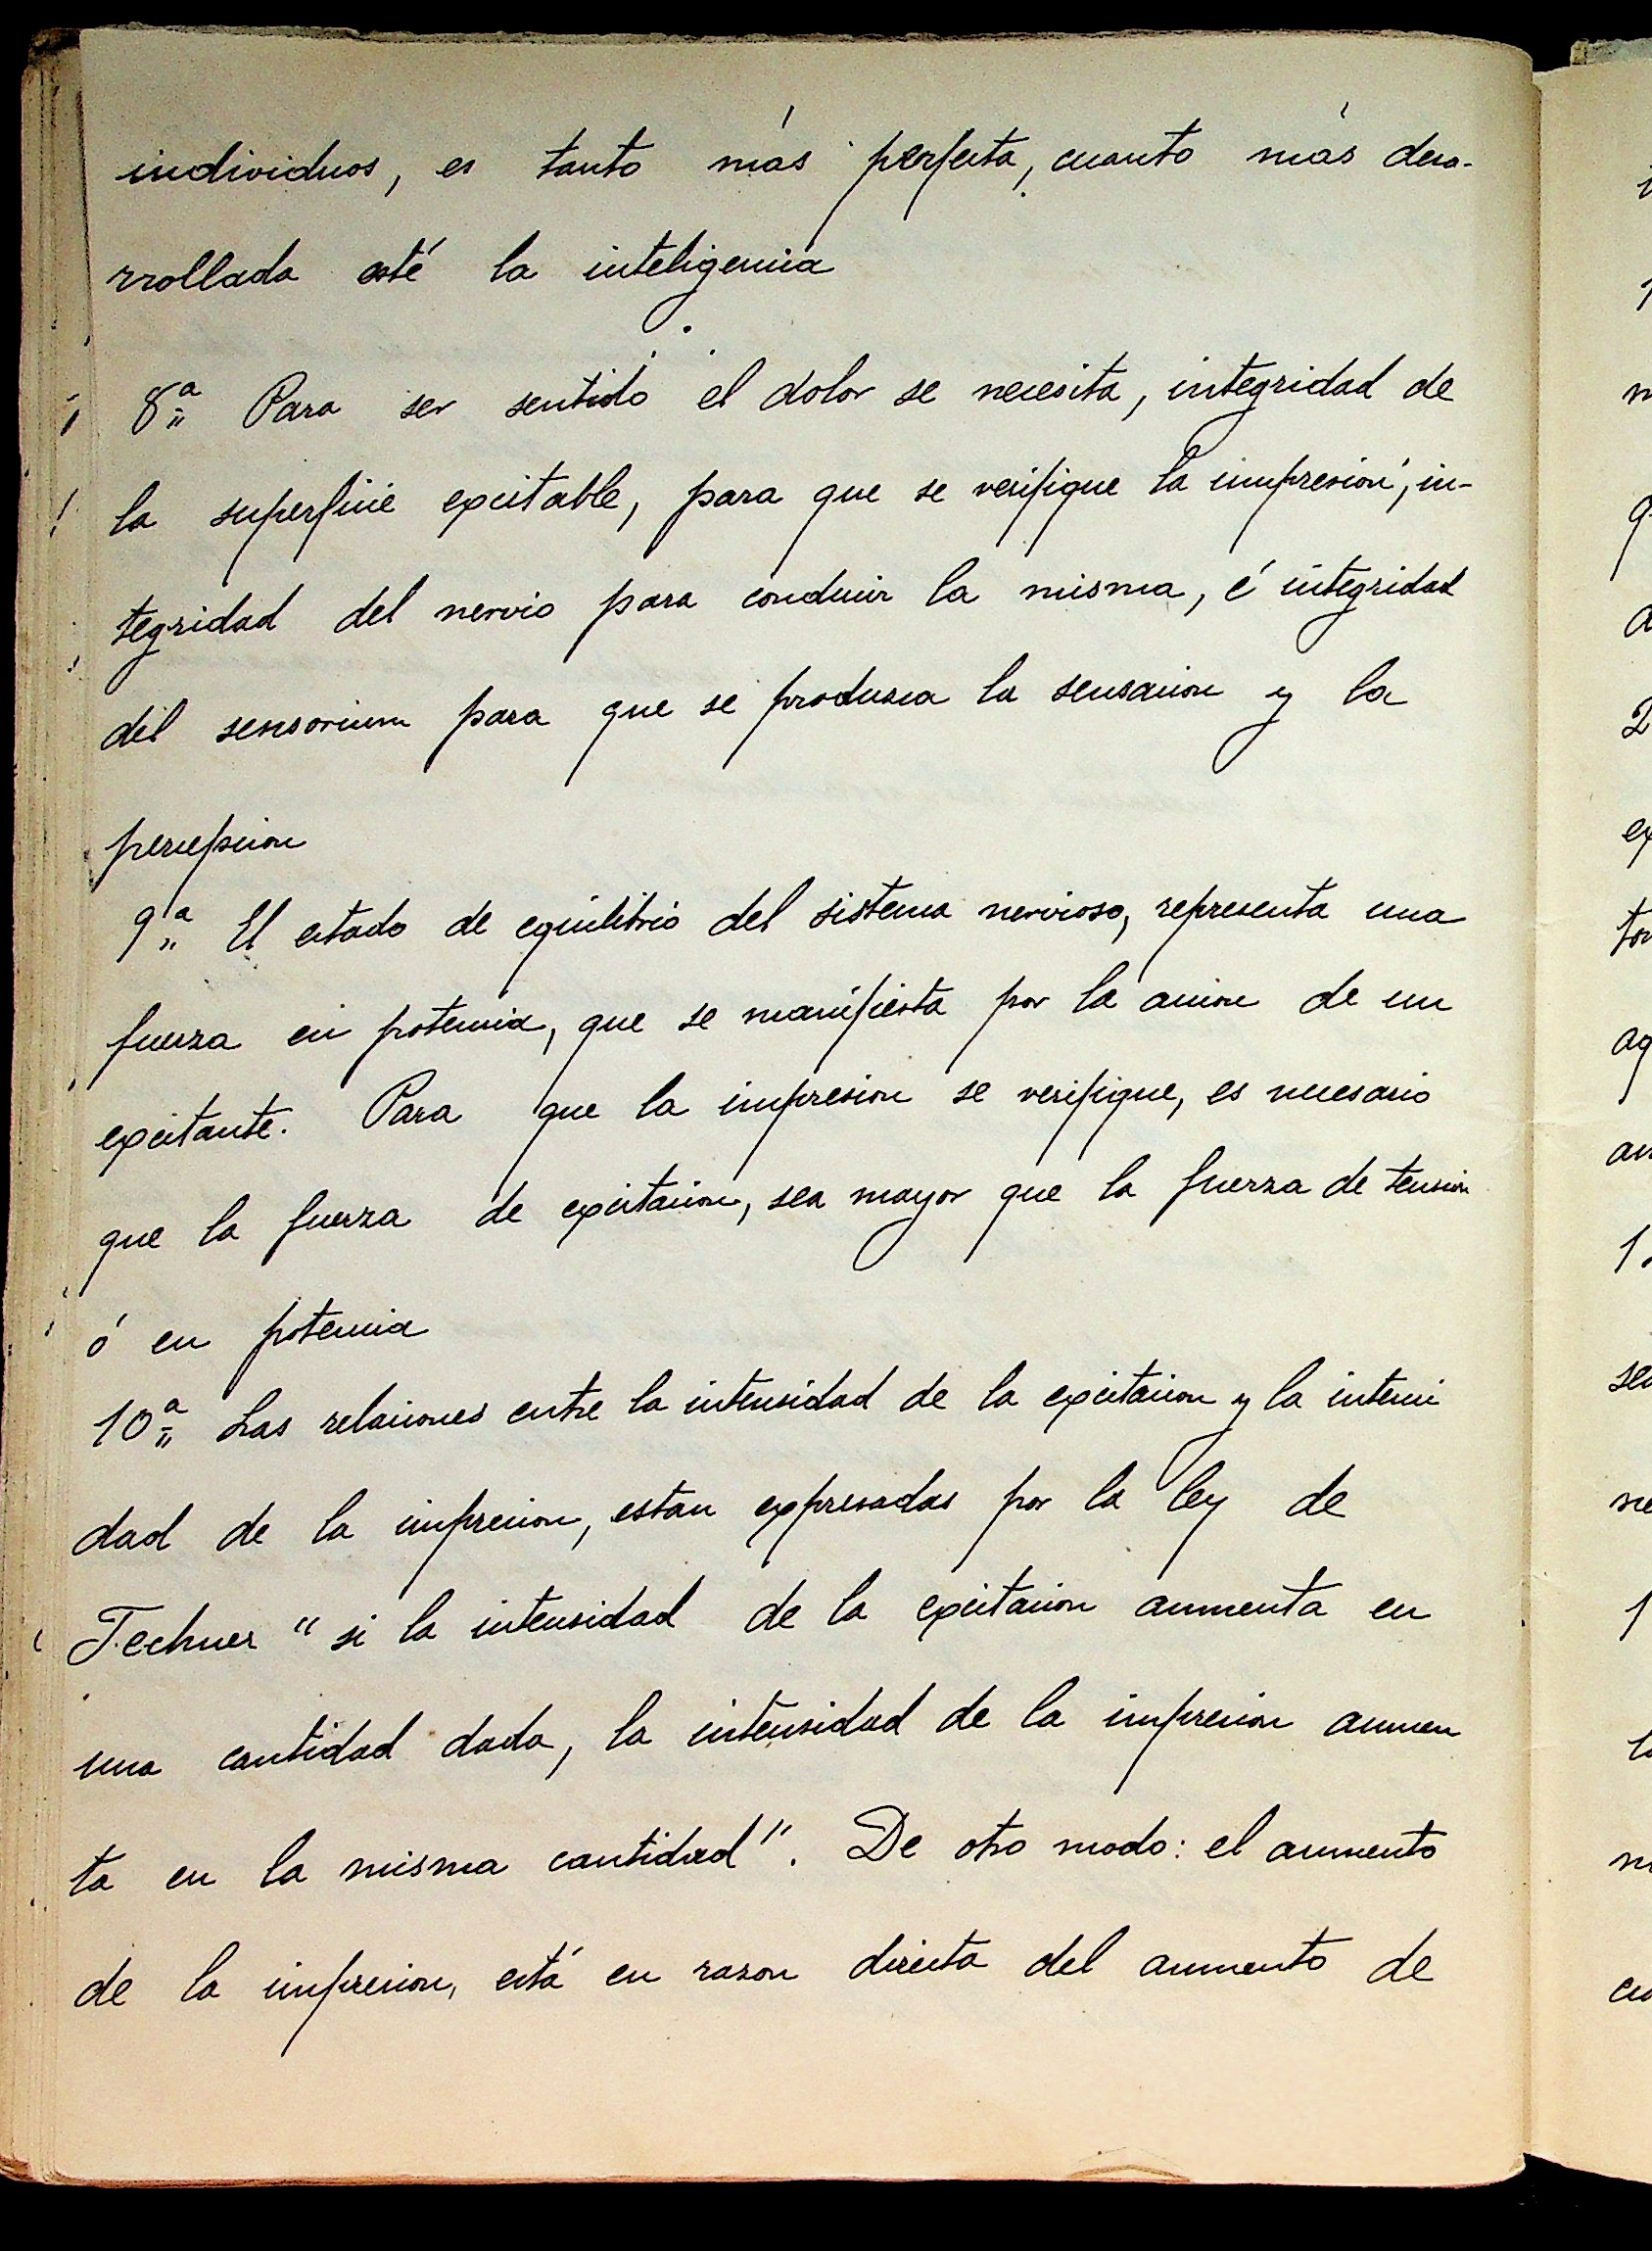 individuos, es tanto más perfecta, cuanto más desa-
rrollada esté la inteligencia
8ª Para ser sentido el dolor se necesita, integridad de
la superficie excitable, para que se verifique la impresión, in-
tegridad del nervio para conducir la misma, é integridad
del sensorium para que se produsca la sensacion y la
percepcion
9ª El estado de equilibrio del sistema nervioso, representa una
fuerza en potencia, que se manifiesta por la accion de un
excitante. Para que la impresion se verifique, es necesario
que la fuerza de excitacion, sea mayor que la fuerza de tension
ó en potencia
10ª Las relaciones entre la intensidad de la excitacion y la intensi
dad de la impresion, estan expresadas por la ley de
Fechner "si la intensidad de la excitacion aumenta en
una cantidad dada, la intensidad de la impresion aumen
ta en la misma cantidad". De otro modo: el aumento
de la impresion, está en razon directa del aumento de